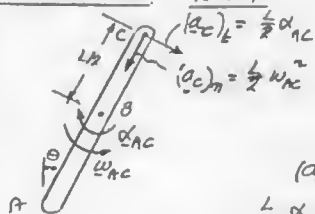 C
(a_C)_t = L/2 α_AC
L/2
(a_C)_n = L/2 ω_AC²
B
α_AC
θ
ω_AC
(a
A
L α